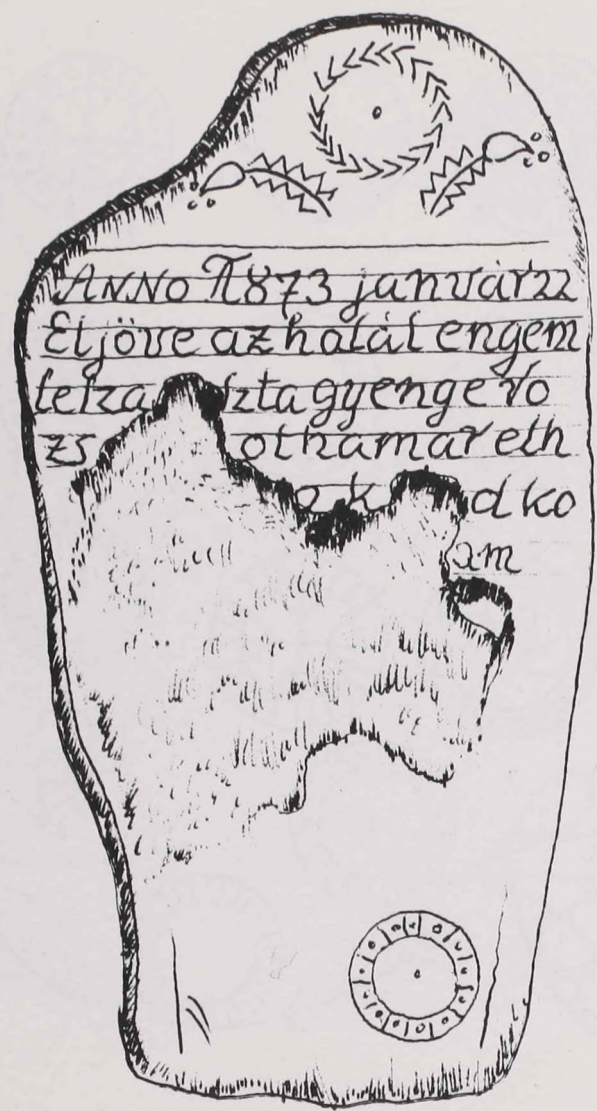 ANNO 1873 január 22
Eljöve az halál engem
le zta gyenge ro
zs ot ha mar eth
o k d ko
am